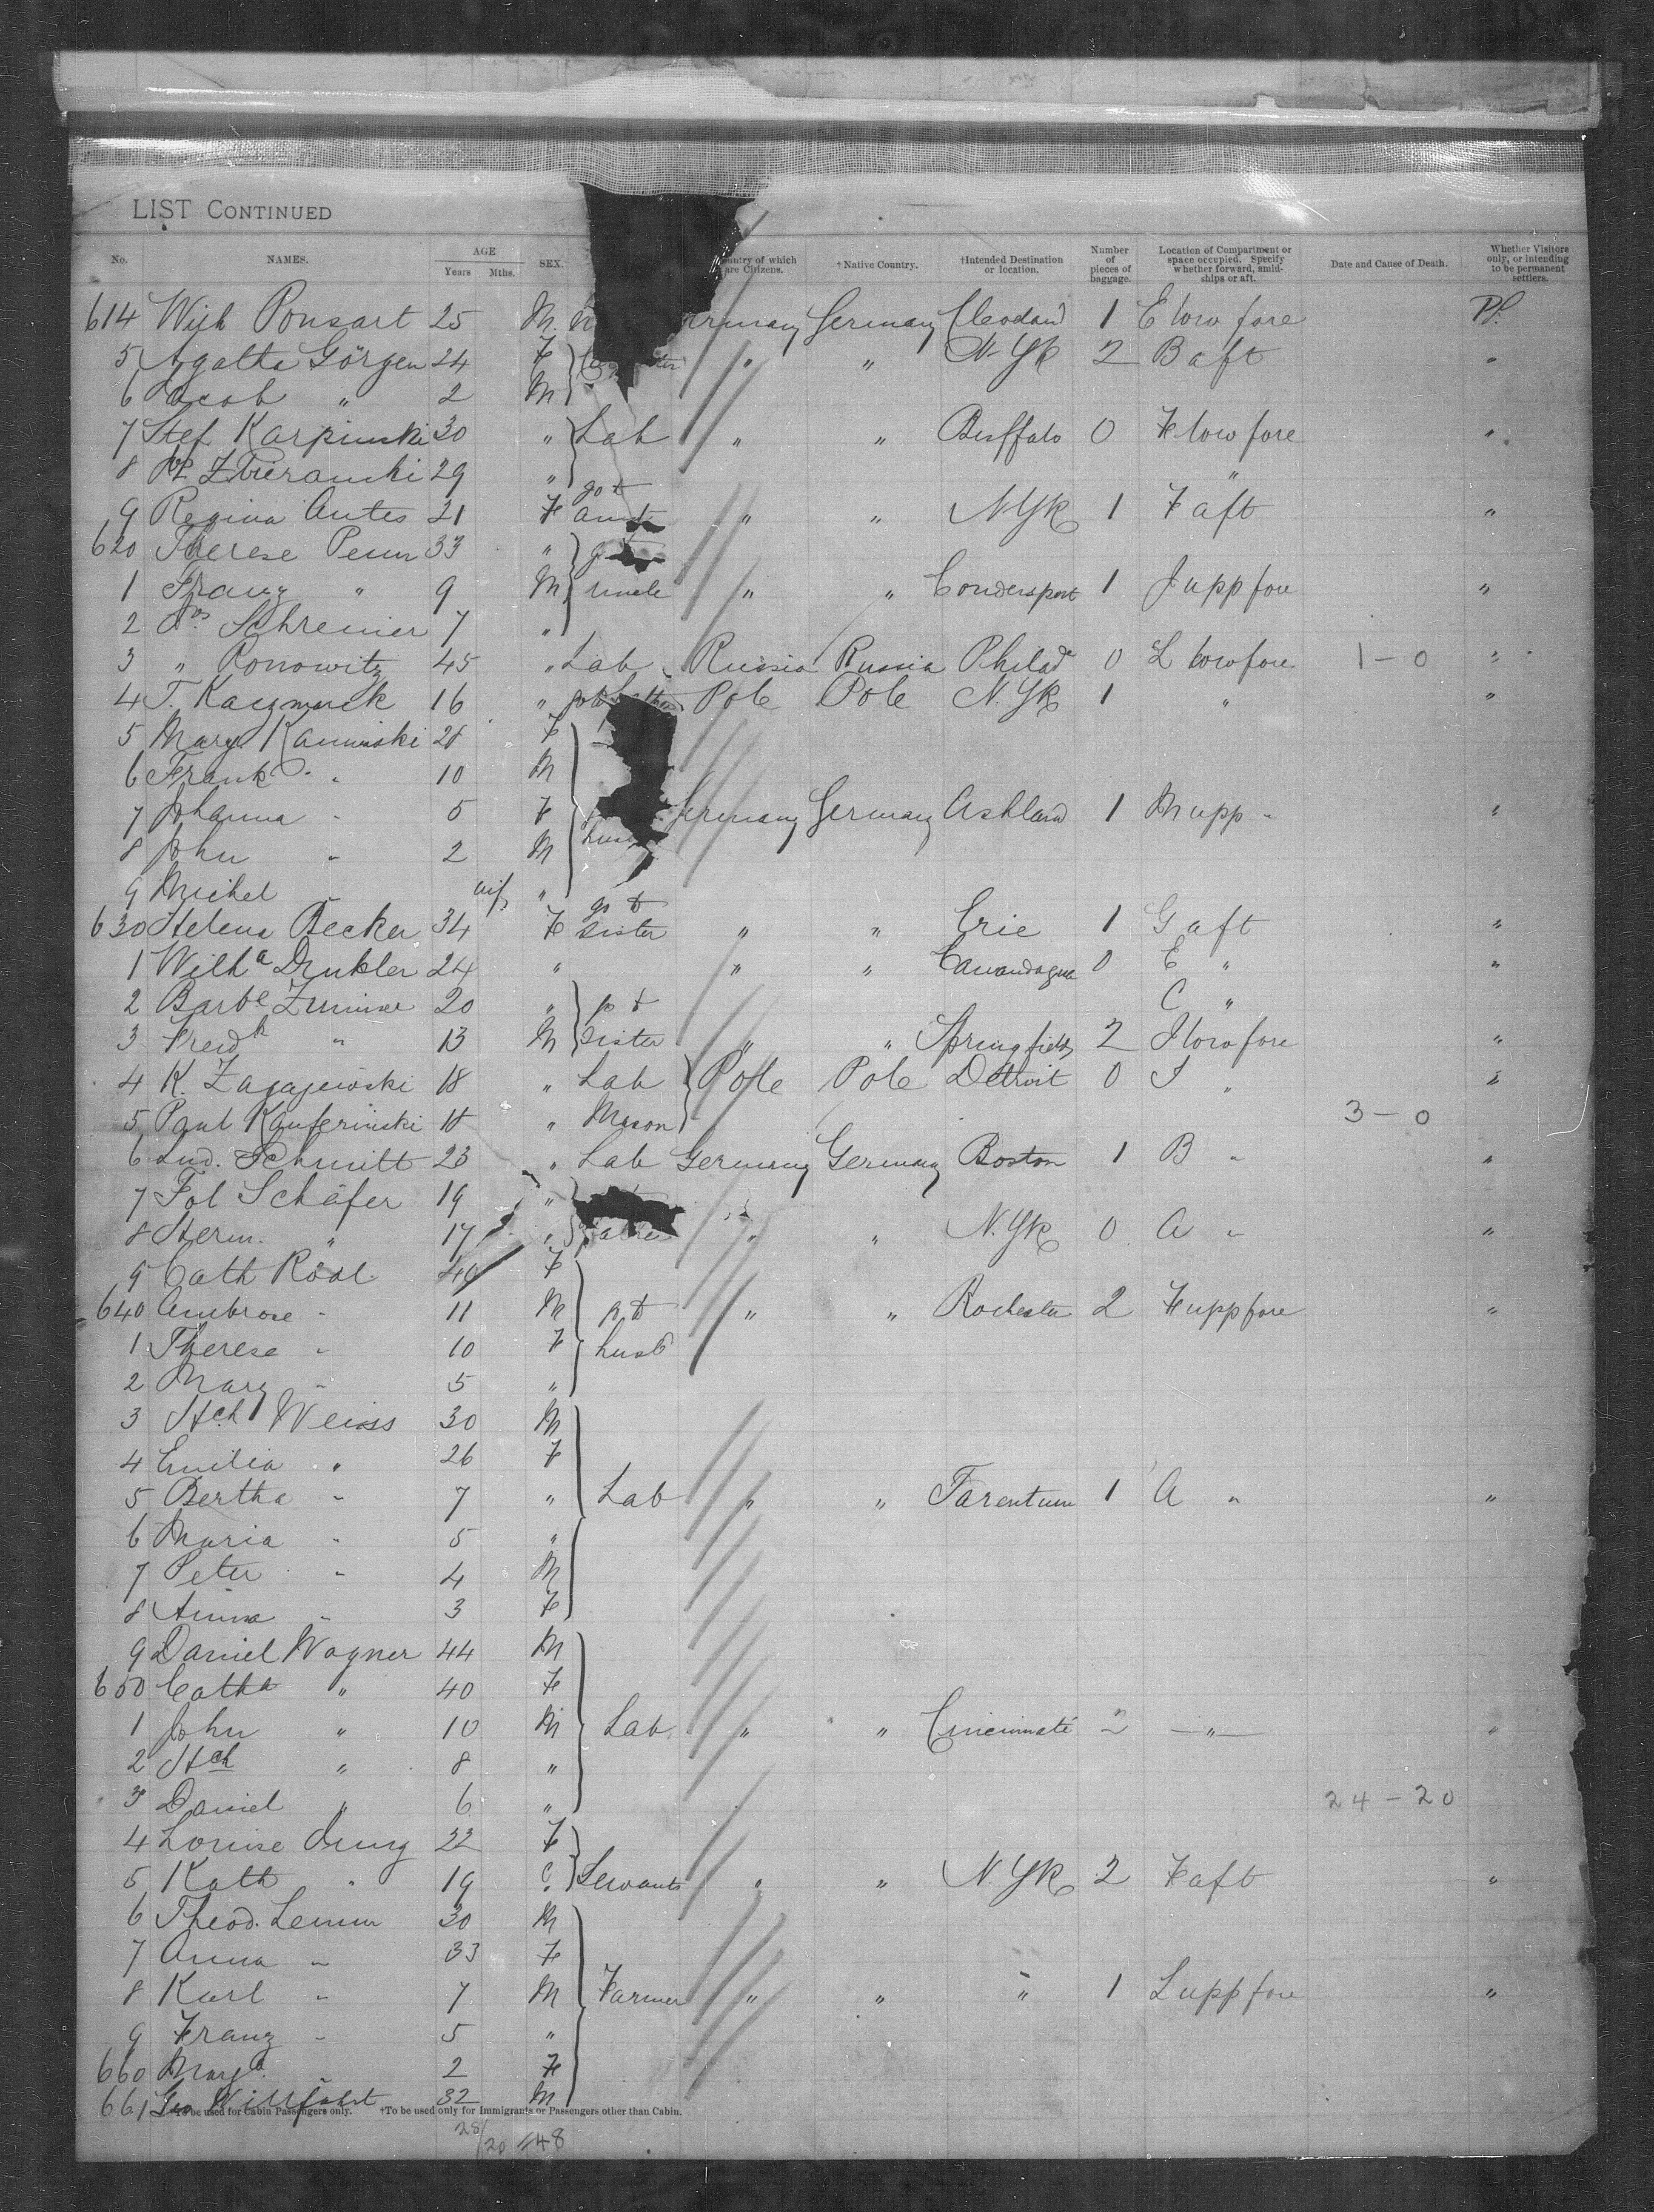 LIST CONTINUED
No. NAMES. AGE Years Mths. SEX. Country of which are Citizens. †Native Country. †Intended Destination or location. Number of pieces of baggage. Location of Compartment or space occupied. Specify whether forward, amidships or aft. Date and Cause of Death. Whether Visitors only, or intending to be permanent settlers.
614 Wilh Ponsart 25 M. Germany 1 E low fore
5 Agatha Görgen 24 F " " N. Yk 2 B aft "
6 Jacob " 2 M
7 Stef Karpinski 30 " Lab " " Buffalo 0 F low fore "
8 29 " "
9 Regina Antes 21 F go to aunt " " N. Yk 1 F aft "
620 Therese Penn 33 "
1 Franz " 9 M uncle " " Coudersport 1 J upp fore "
2 Schreiner 7 "
3 " Ronowitz 45 " Lab Russia Russia Philad 0 L low fore 1 - 0 "
4 T. Kaczmarek 16 " Pole Pole N. Yk 1 " "
5 Mary Kaminski 28 F
6 Frank " 10 M
7 Johanna " 5 F Germany Germany Ashland 1 M upp " "
8 John " 2 M
9 Michel " inf "
630 Helena Becker 34 F go to sister " " Erie 1 G aft "
1 Wilha 24 " " " 0 E " "
2 Barbe 20 " go to C "
3 Fredk " 13 M sister " " Springfield 2 J low fore "
4 K. Zagajewski 18 " Lab Pole Pole Detroit 0 J " "
5 Paul 18 " Mason 3 - 0
6 Lud. Schmitt 23 " Lab Germany Germany Boston 1 B " "
7 Schäfer 19 "
8 Herm. " 17 " " " N. Yk 0 A " "
9 Cath 40 F
640 Ambrose " 11 M go to " " Rochester 2 F upp fore "
1 Therese " 10 F husb
2 Mary " 5 "
3 Hch Weiss 30 M
4 Emilia " 26 F
5 Bertha " 7 " Lab " " Tarentum 1 A " "
6 Maria " 5 "
7 Peter " 4 M
8 Anna " 3 F
9 Daniel Wagner 44 M
650 Catha " 40 F
1 John " 10 M Lab " " Cincinnati 2 " "
2 Hch " 8 "
3 Daniel " 6 " 24 - 20
4 Louise Jung 22 F
5 Kath " 19 " Servants " " N. Yk 2 F aft "
6 Theod. Lemm 30 M
7 Anna " 33 F
8 Karl " 7 M Farmer " " " 1 L upp fore "
9 Franz " 5 "
660 " 2 F
661 Geo 32 M
*To be used for Cabin Passengers only. †To be used only for Immigrants or Passengers other than Cabin.
28/20 48